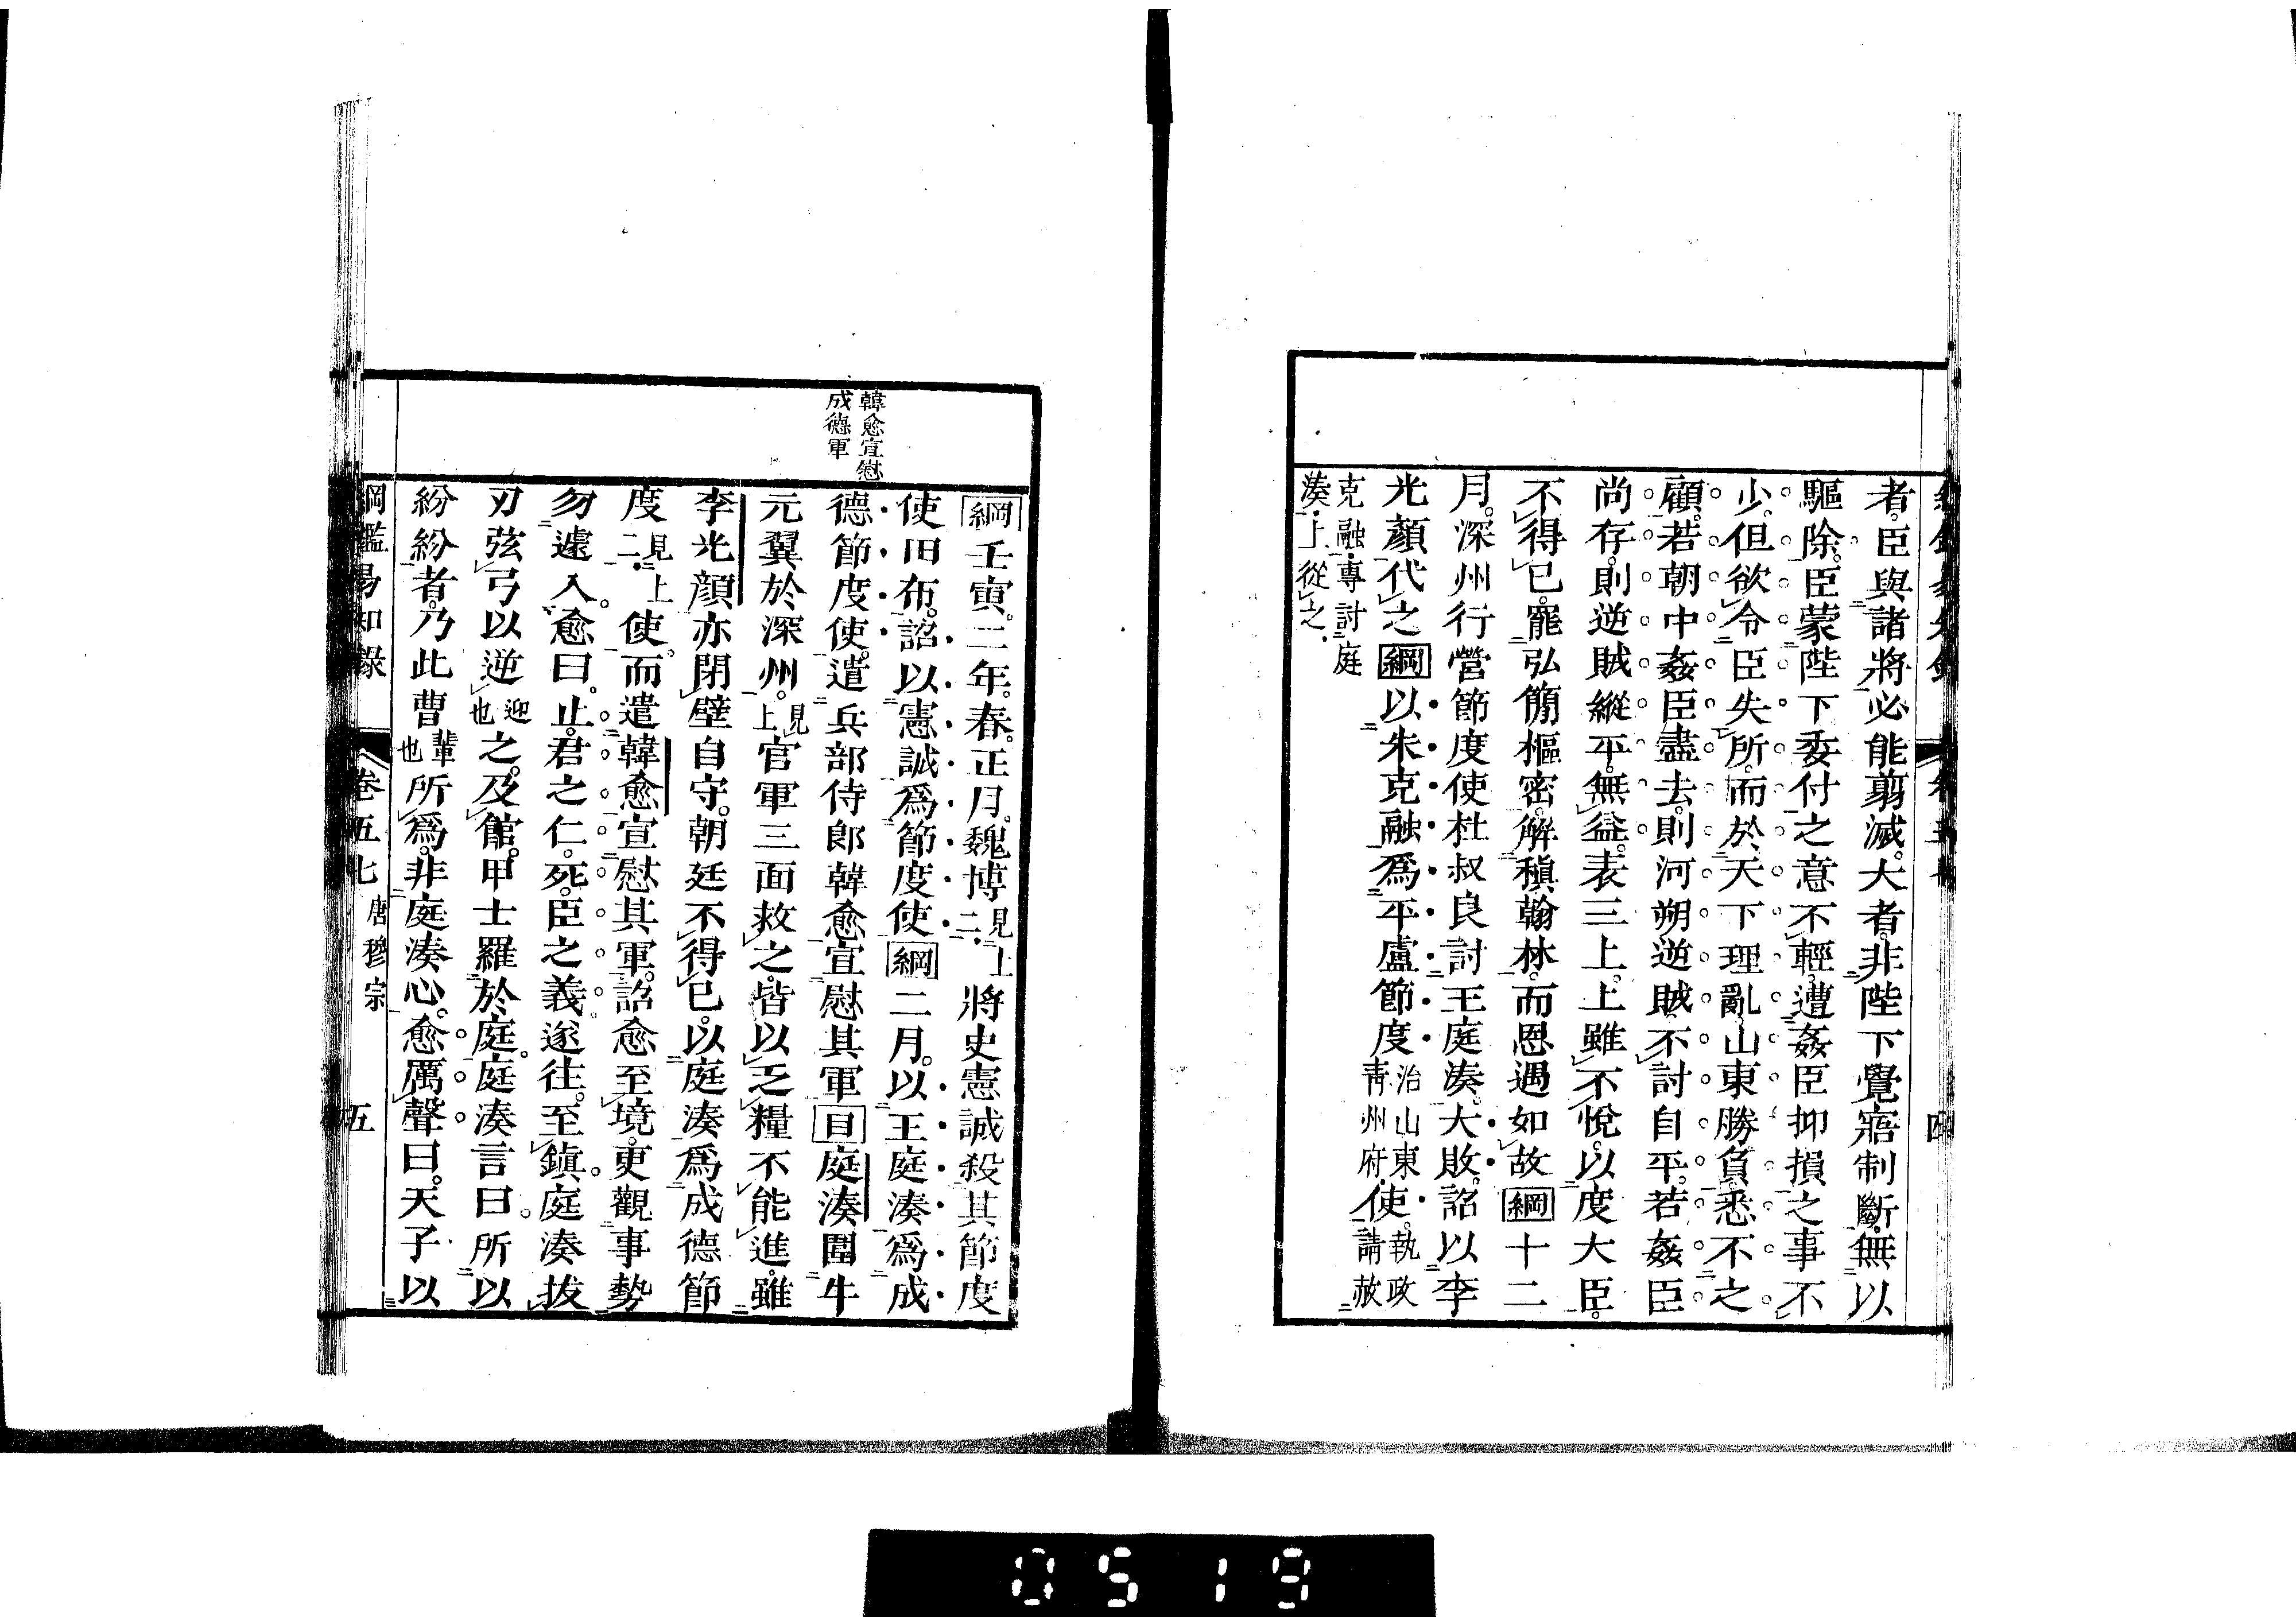 者。臣與諸將必能翦滅。大者。非陛下覺寤制斷。無以
驅除。臣蒙陛下委付之意不輕。遭姦臣抑損之事不
少。但欲令臣失所。而於天下理亂山東勝負。悉不之
顧。若朝中姦臣盡去。則河朔逆賊不討自平。若姦臣
尚存。則逆賊縱平。無益。表三上。上雖不悅。以度大臣。
不得已。罷弘簡樞密。解稹翰林。而恩遇如故綱十二
月。深州行營節度使杜叔良討王庭湊。大敗。詔以李
光顏代之綱以朱克融爲平盧節度治山東青州府使。執政請赦
克融。專討庭湊。上從之。
韓愈宣慰
成德軍
綱壬寅。二年。春。正月。魏博見上二將史憲誠殺其節度
使田布。詔以憲誠爲節度使綱二月。以王庭湊爲成
德節度使。遣兵部侍郎韓愈宣慰其軍目庭湊圍牛
元翼於深州。見上官軍三面救之。皆以乏糧不能進。雖
李光顏亦閉壁自守。朝廷不得已。以庭湊爲成德節
度見上二使。而遣韓愈宣慰其軍。詔愈至境。更觀事勢。
勿遽入。愈曰。止。君之仁。死。臣之義。遂往。至鎮。庭湊拔
刃弦弓以逆迎也之。及館。甲士羅於庭。庭湊言曰。所以
紛紛者。乃此曹輩也所爲。非庭湊心。愈厲聲曰。天子以
綱鑑易知錄 卷五七 唐穆宗 五
0519